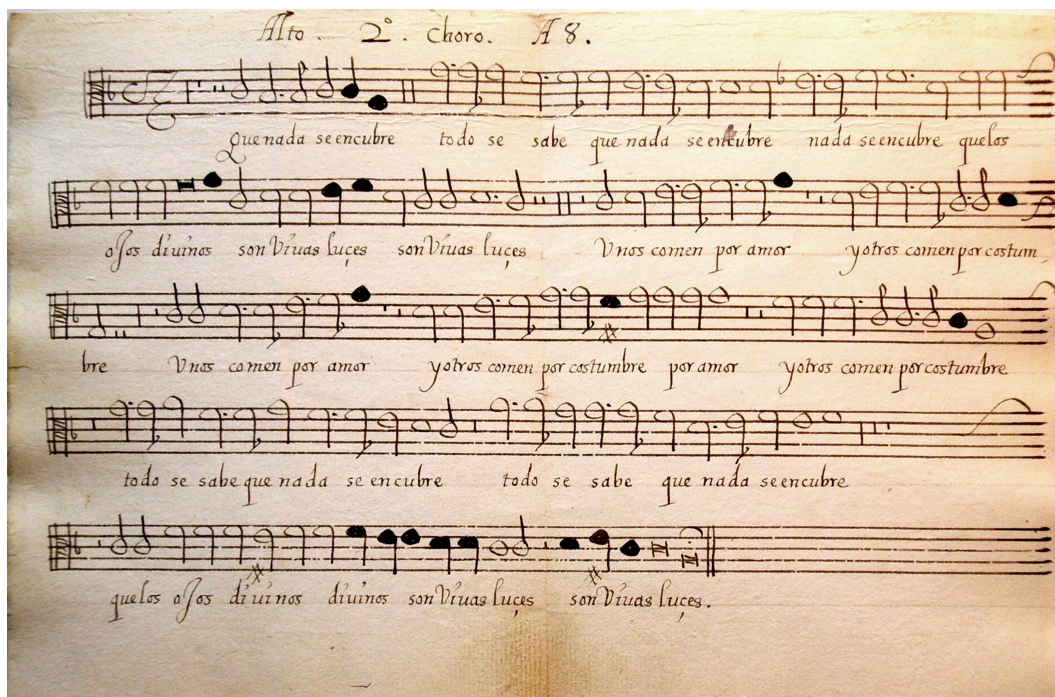 Alto. 2º. Choro. A 8.
Que nada se encubre todo se sabe que nada se encubre nada se encubre que los
oJos divinos son Vivas luçes son Vivas luçes Vnos comen por amor y otros comen por costum
bre Vnos comen por amor y otros comen por costumbre por amor y otros comen por costumbre
todo se sabe que nada se encubre todo se sabe que nada se encubre
que los oJos divinos divinos son Vivas luçes son Vivas luçes.